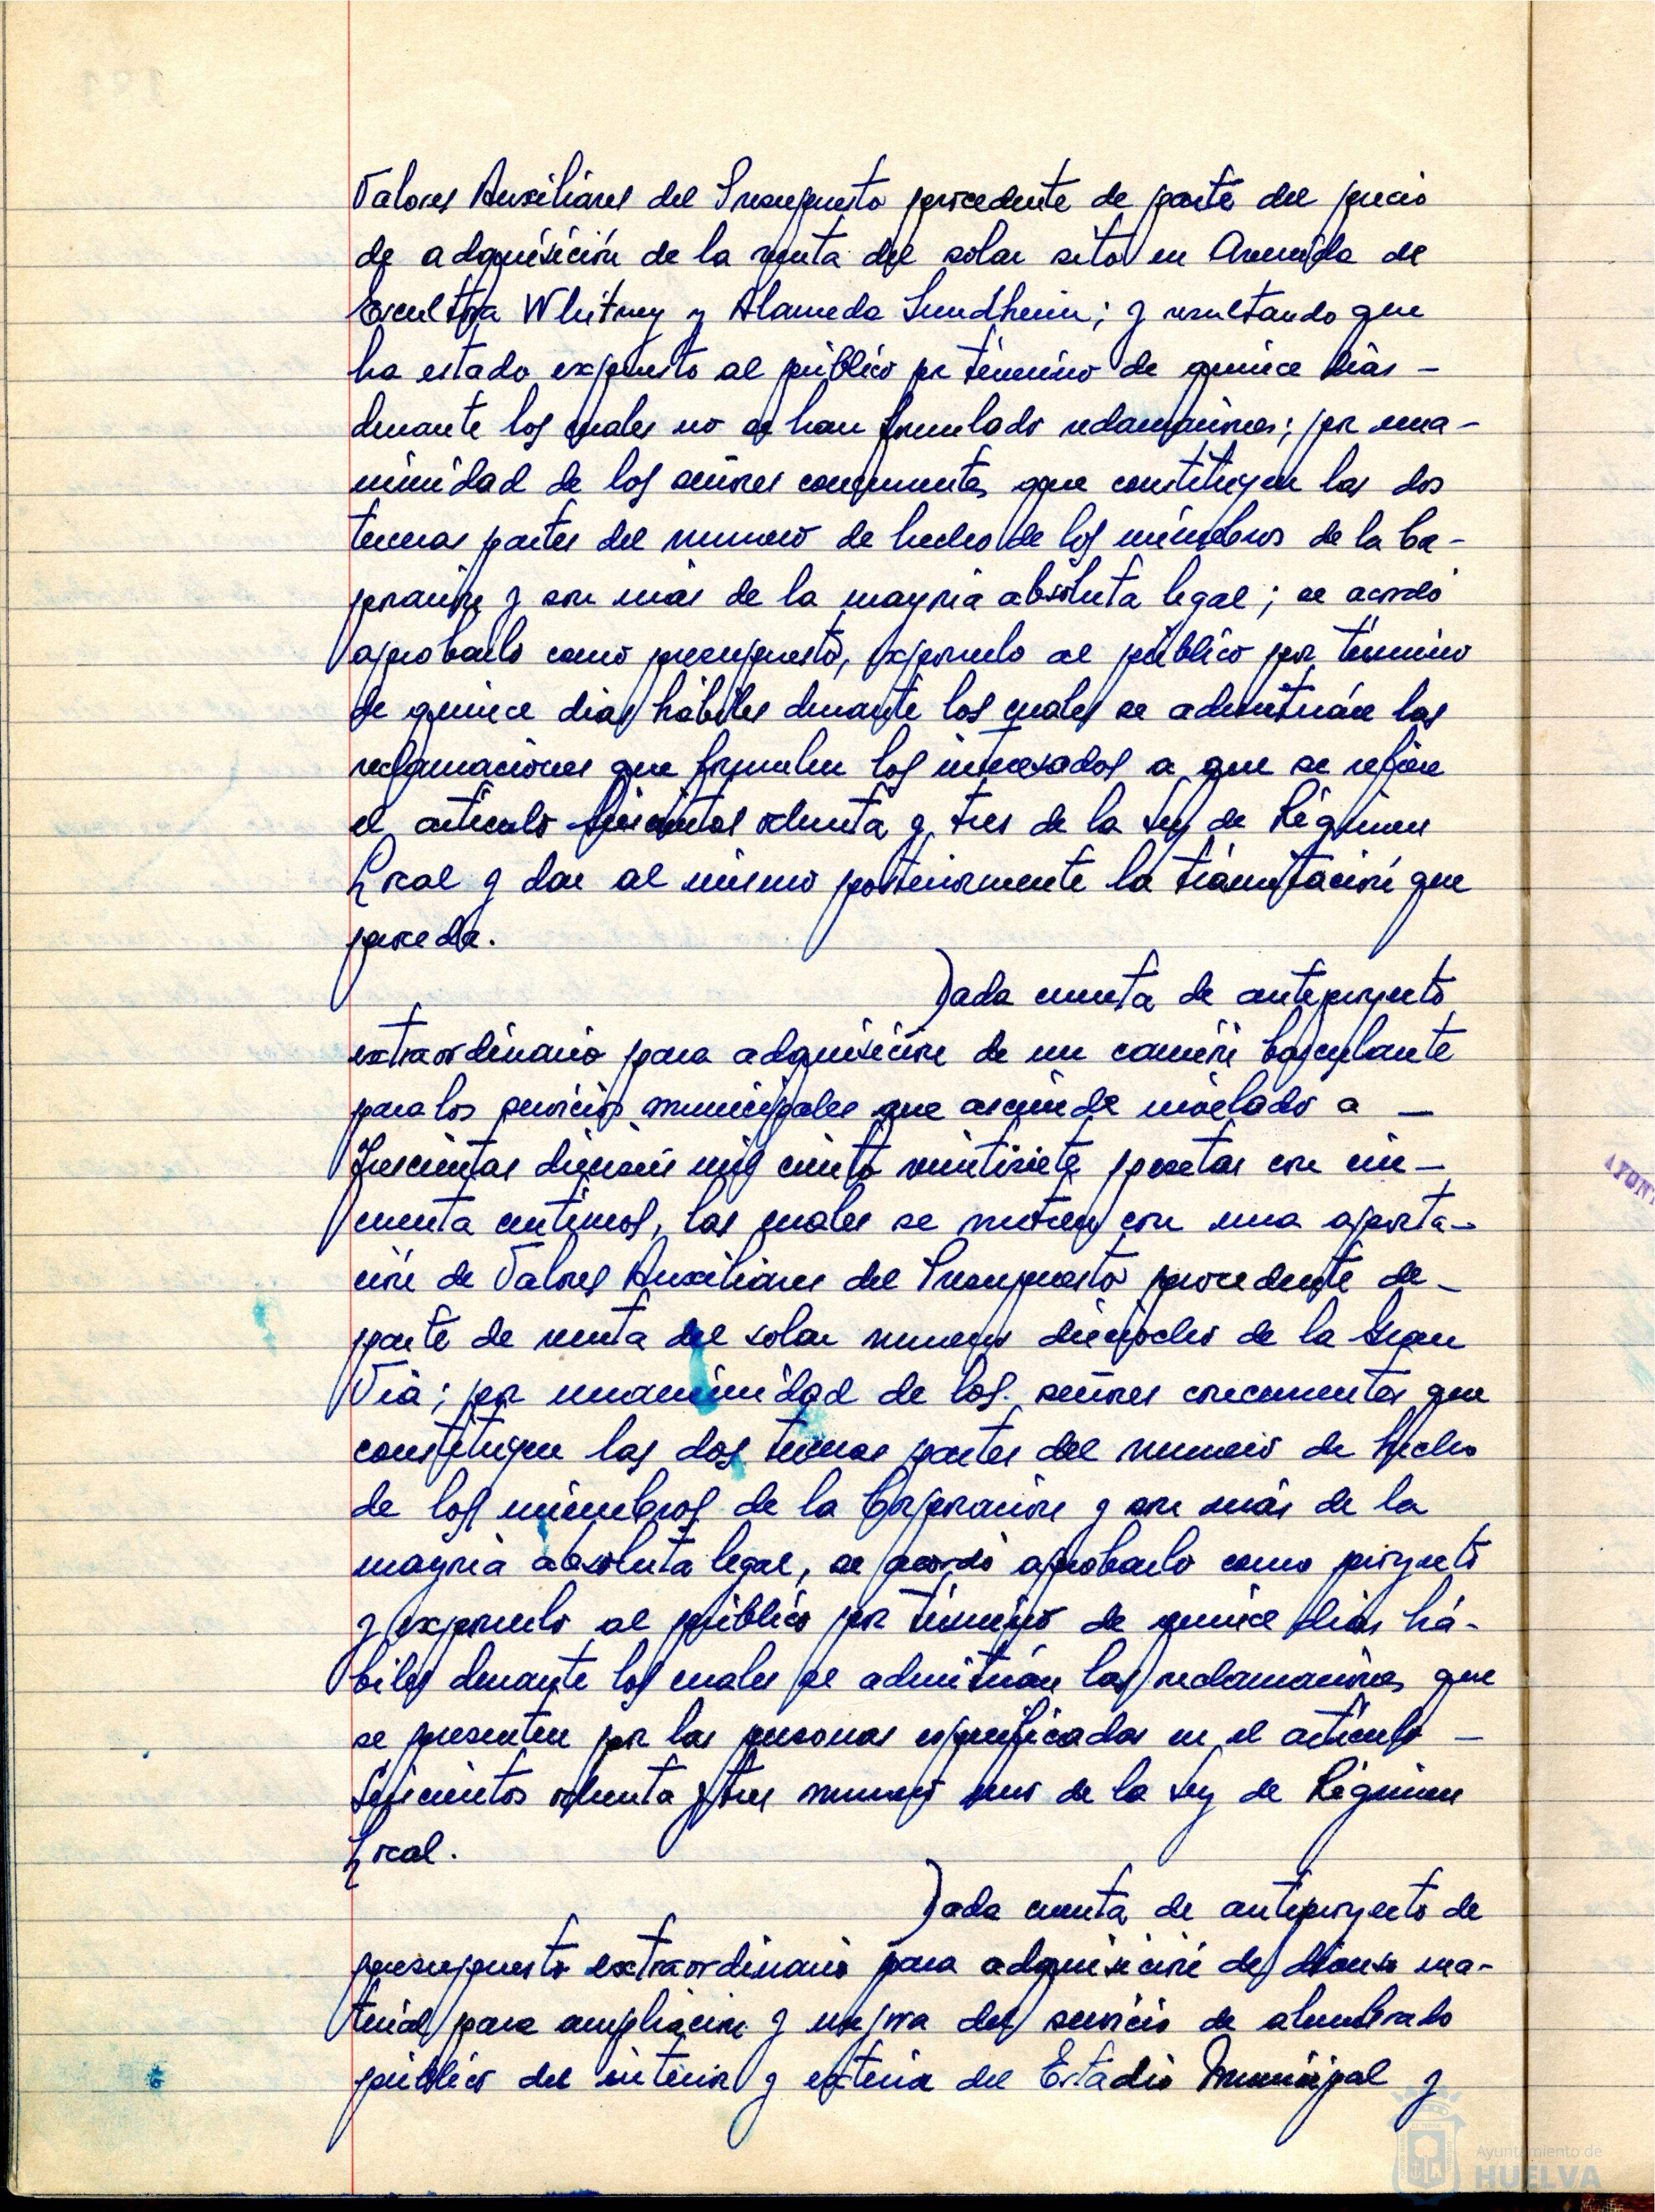 Valores Auxiliares del Presupuesto procedente de parte del precio
de adquisición de la venta del solar sito en Avenida de
Escultora Whitney y Alameda Sundheim; y resultando que
ha estado expuesto al público por término de quince días –
durante los cuales no se han formulado reclamaciones; por una-
nimidad de los señores concurrentes que constituyen las dos
terceras partes del numero de hecho de los miembros de la Co-
poración y son más de la mayoría absoluta legal; se acordó
aprobarlo como presupuesto, exponerlo al público por término
de quince días hábiles durante los cuales se admitirán las
reclamaciones que formulen los interesados a que se refiere
el artículo seiscientos ochenta y tres de la Ley de Régimen
Local y dar al mismo posteriormente la tramitación que
proceda.
Dada cuenta de anteproyecto
extraordinario para adquisición de un camión basculante
para los servicios municipales que asciende nivelado a –
trescientas dieciseis mil ciento veintisiete pesetas con cin-
cuenta centimos, las cuales se nutren con una aporta-
ción de Valores Auxiliares del Presupuesto procedente de-
parte de venta del solar numero dieciocho de la Gran
Vía; por unanimidad de los señores concurrentes que
constituyen las dos terceras partes del numero de hecho
de los miembros de la Corporación y son más de la
mayoría absoluta legal, se acordó aprobarlo como proyecto
y exponerlo al público por término de quince días há-
biles durante los cuales se admitirán las reclamaciones que
se presenten por las personas especificadas en el artículo –
seiscientos ochenta y tres numero uno de la Ley de Régimen
Local.
Dada cuenta de anteproyecto de
presupuesto extraordinario para adquisición de diverso ma-
terial para ampliación y mejora del servicio de alumbrado
público del interior y exterior del Estadio Municipal y
Ayuntamiento de
HUELVA